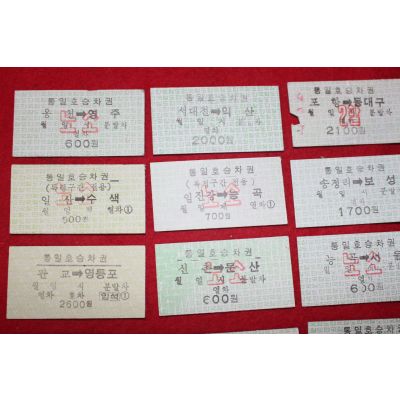 통일호승차권
웅천➡영주
월 일 시 분발차
600원
통일호승차권
서대전➡익산
월 일 시 분발차
열차
2000원
포항➡동대구
월 일 시 분발차
2100원
통일호승차권
(특정구간전용)
➡수색
월 일 시
500원 열차①
통일호승차권
(특정구간전용)
임진강➡능곡
월 일 시
700원 열차①
통일호승차권
송정리➡보성
월 일 시 분발차
1700원
통일호승차권
판교➡영등포
월 일 시 분발차
열차 호차 입석①
2600원
통일호승차권
신촌➡문산
월 일 시 분발차
열차
600원
통일호승차권
능곡➡서울
월 일 시 분발차
600원